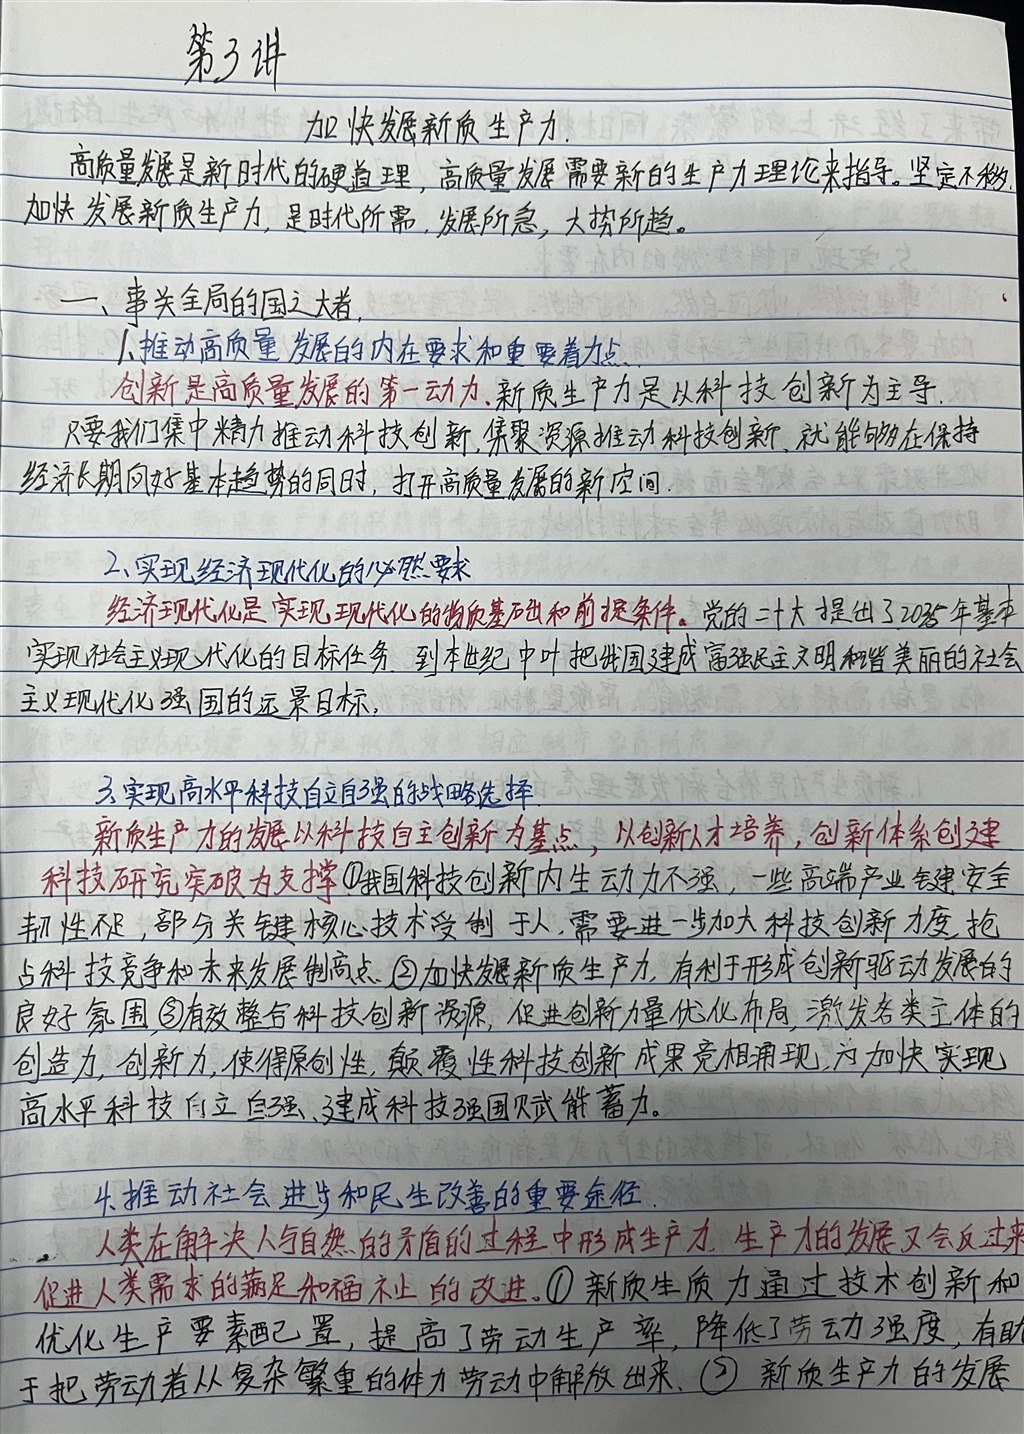 第3讲
加快发展新质生产力.
高质量发展是新时代的硬道理，高质量发展需要新的生产力理论来指导。坚定不移
加快发展新质生产力，是时代所需，发展所急，大势所趋。
一、事关全局的国之大者.
1.推动高质量发展的内在要求和重要着力点.
创新是高质量发展的第一动力.新质生产力是以科技创新为主导.
只要我们集中精力推动科技创新，集聚资源推动科技创新，就能够在保持
经济长期向好基本趋势的同时，打开高质量发展的新空间.
2、实现经济现代化的必然要求
经济现代化是实现现代化的物质基础和前提条件。党的二十大提出了2035年基本
实现社会主义现代化的目标任务.到本世纪中叶把我国建成富强民主文明和谐美丽的社会
主义现代化强国的远景目标，
3.实现高水平科技自立自强的战略选择.
新质生产力的发展以科技自主创新为基点，以创新人才培养，创新体系创建
科技研究突破为支撑①我国科技创新内生动力不强，一些高端产业链建安全
韧性不足，部分关键核心技术受制于人，需要进一步加大科技创新力度，抢
占科技竞争和未来发展制高点.②加快发展新质生产力，有利于形成创新驱动发展的
良好氛围，③有效整合科技创新资源，促进创新力量优化布局，激发各类主体的
创造力，创新力，使得原创性，颠覆性科技创新成果竞相涌现，为加快实现
高水平科技自立自强、建成科技强国赋能蓄力。
4.推动社会进步和民生改善的重要途径.
人类在解决人与自然的矛盾的过程中形成生产力.生产力的发展又会反过来
促进人类需求的满足和福祉的改进。①新质生质力通过技术创新和
优化生产要素配置，提高了劳动生产率，降低了劳动力强度，有助
于把劳动者从复杂繁重的体力劳动中解放出来.②新质生产力的发展